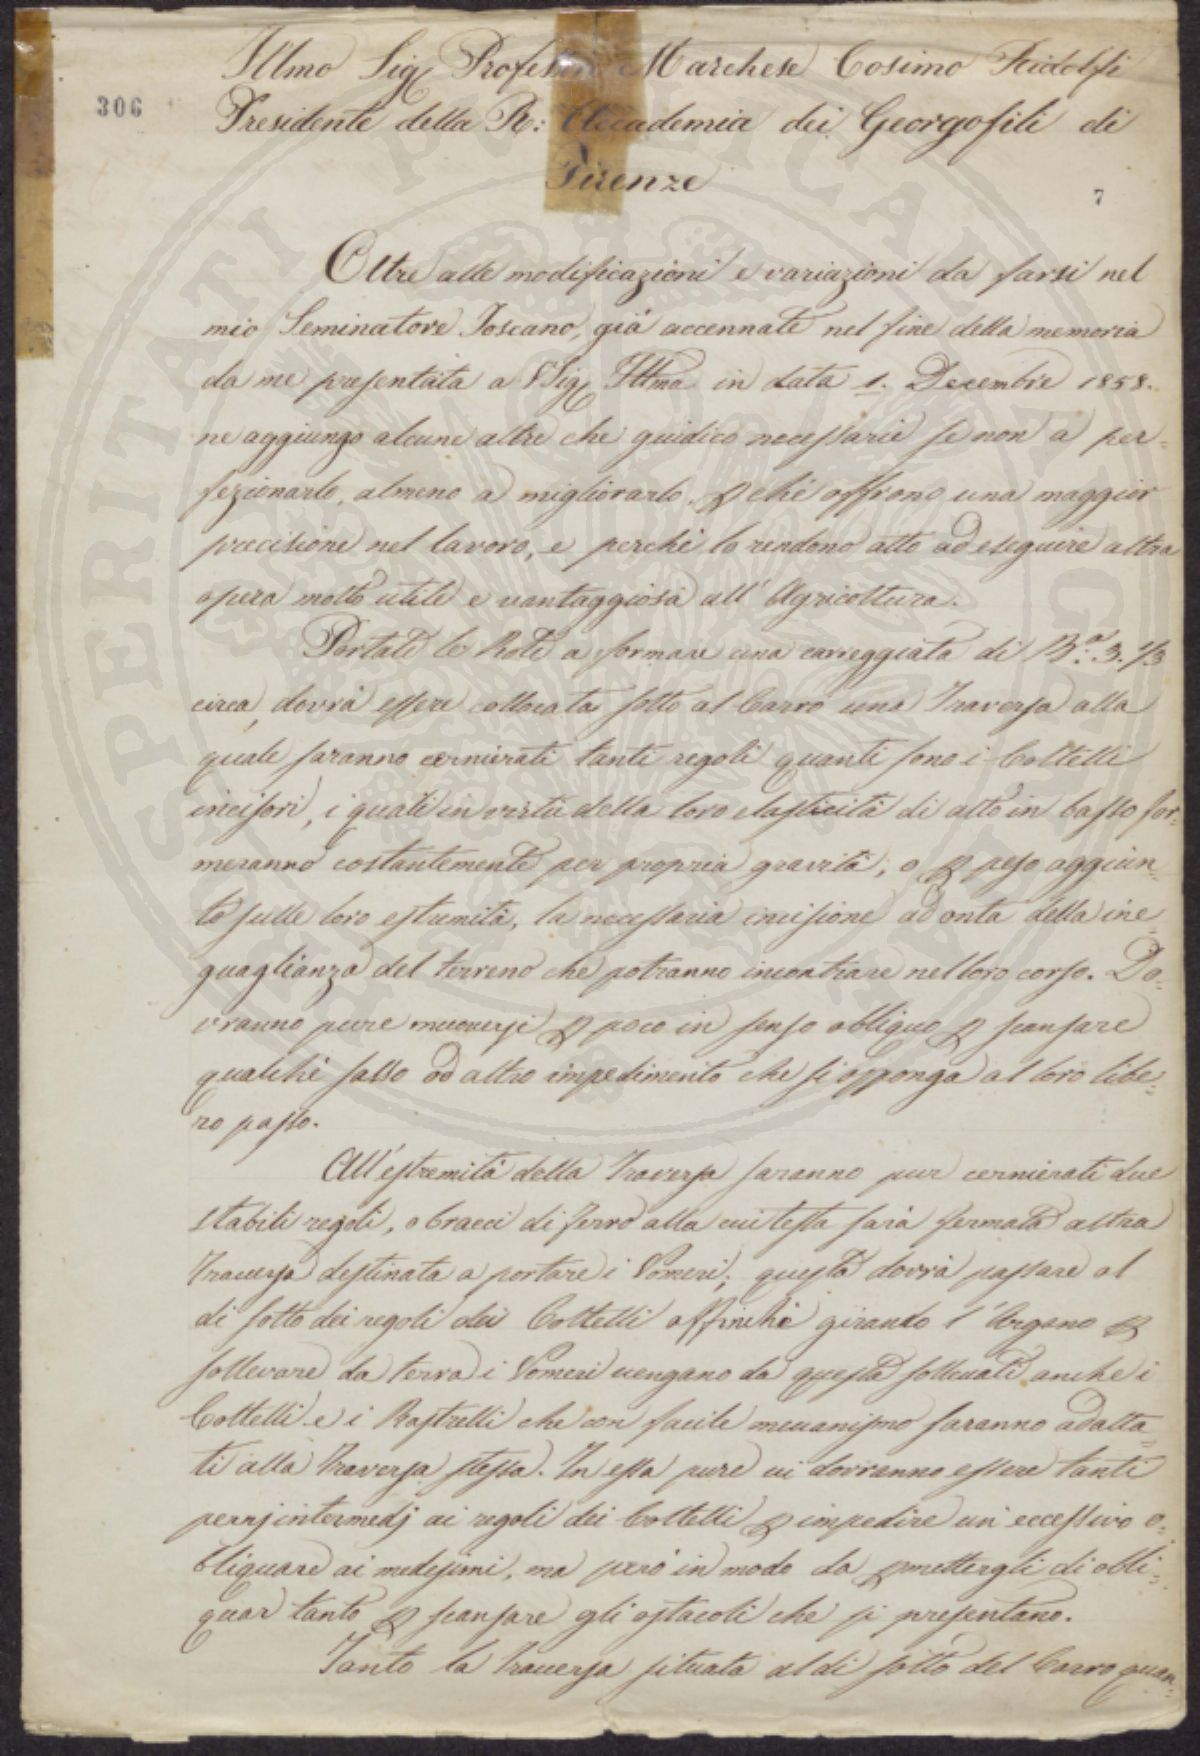 Illmo Sig. Professor Marchese Cosimo Ridolfi
306
Presidente della R: Accademia dei Georgofili di
Firenze
7
Oltre alle modificazioni e variazioni da farsi nel
mio Seminatore Toscano, già accennate nel fine della memoria
da me presentata a VSig. Illma in data 1. Decembre 1858.
ne aggiungo alcune altre che giudico necessarie se non a per=
fezionarlo, almeno a migliorarlo, pchè offrono una maggior
precisione nel lavoro, e perchè lo rendono atto ad eseguire altra
opera molto utile e vantaggiosa all'Agricoltura.
Portate le Rote a formare una carreggiata di Ba. 3. 1/3
circa, dovrà essere collocata sotto al Carro una Traversa alla
quale saranno cernierati tanti regoli quanti sono i Coltelli
incisori, i quali in virtù della loro elasticità di alto in basso for=
meranno costantemente per propria gravità, o p peso aggiun=
to sulle loro estremità, la necessaria incisione ad onta della ine=
guaglianza del terreno che potranno incontrare nel loro corso. Do=
vranno pure muoversi p poco in senso obliquo p scansare
qualche sasso od altro impedimento che si opponga al loro libe=
ro passo.
All'estremità della Traversa saranno pur cernierati due
stabili regoli, o bracci di ferro alla cui testa sarà fermata altra
Traversa destinata a portare i Vomeri; questa dovrà passare al
di sotto dei regoli dei Coltelli affinchè girando l'Argano p
sollevare da terra i Vomeri vengano da questa sollevati anche i
Coltelli e i Rastrelli che con facile meccanismo saranno adatta=
ti alla Traversa stessa. In essa pure vi dovranno essere tanti
pernj intermedj ai regoli dei Coltelli p impedire un eccessivo o=
bliquare ai medesimi, ma però in modo da pmettergli di obli=
quar tanto p scansare gli ostacoli che si presentano.
Tanto la Traversa situata al di sotto del Carro quan=